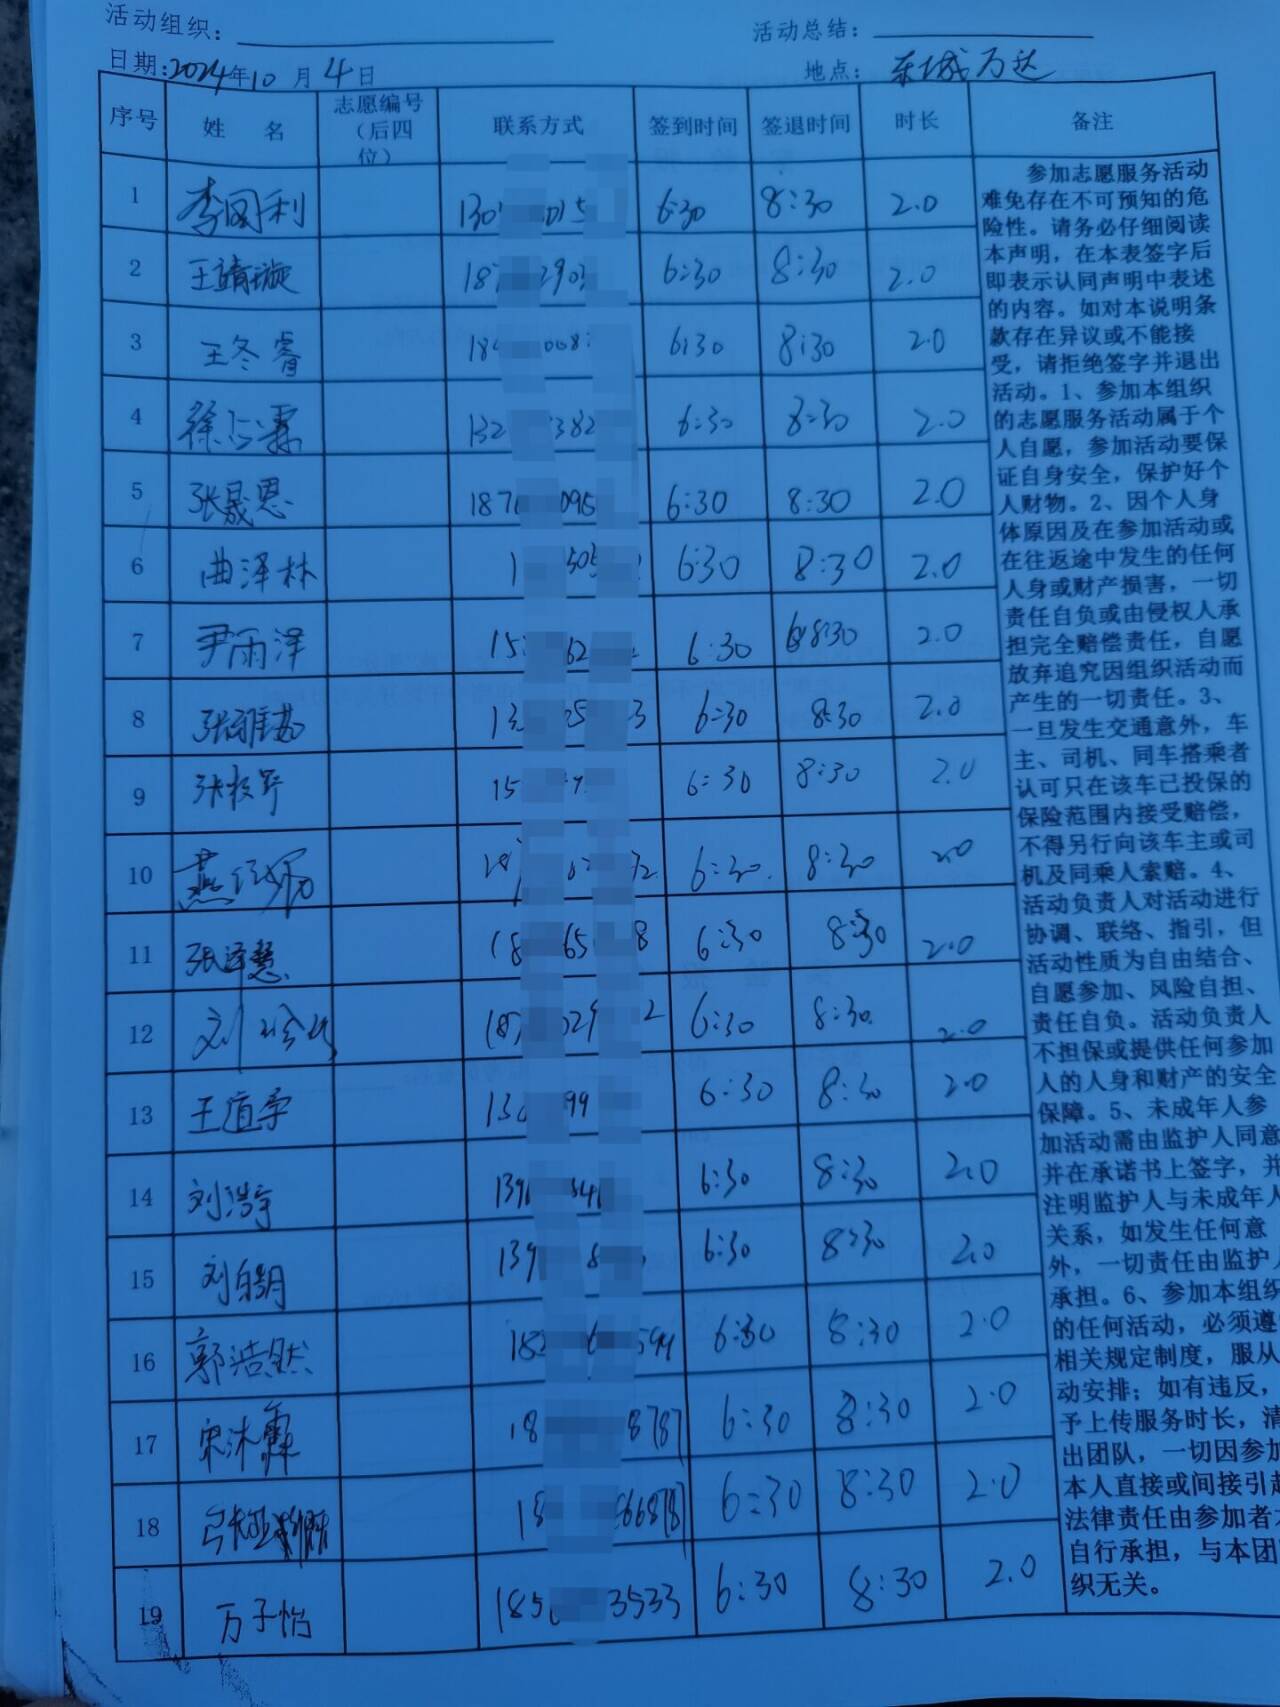 活动组织： 活动总结：
日期：2024年10月4日 地点：东城万达
序号 姓 名 志愿编号（后四位） 联系方式 签到时间 签退时间 时长 备注
1 李国利 6:30 8:30 2.0
2 王靖璇 6:30 8:30 2.0
3 王冬睿 6:30 8:30 2.0
4 6:30 8:30 2.0
5 张晟恩 6:30 8:30 2.0
6 曲泽林 6:30 8:30 2.0
7 尹雨泽 6:30 8:30 2.0
8 6:30 8:30 2.0
9 6:30 8:30 2.0
10 6:30 8:30 2.0
11 张泽慧 6:30 8:30 2.0
12 刘 6:30 8:30 2.0
13 王道宇 6:30 8:30 2.0
14 刘浩宇 6:30 8:30 2.0
15 6:30 8:30 2.0
16 郭浩然 6:30 8:30 2.0
17 宋沐霖 18 8787 6:30 8:30 2.0
18 18 66878 6:30 8:30 2.0
19 万子怡 185 3533 6:30 8:30 2.0
参加志愿服务活动
难免存在不可预知的危
险性。请务必仔细阅读
本声明，在本表签字后
即表示认同声明中表述
的内容。如对本说明条
款存在异议或不能接
受，请拒绝签字并退出
活动。1、参加本组织
的志愿服务活动属于个
人自愿，参加活动要保
证自身安全，保护好个
人财物。2、因个人身
体原因及在参加活动或
在往返途中发生的任何
人身或财产损害，一切
责任自负或由侵权人承
担完全赔偿责任，自愿
放弃追究因组织活动而
产生的一切责任。3、
一旦发生交通意外，车
主、司机、同车搭乘者
认可只在该车已投保的
保险范围内接受赔偿，
不得另行向该车主或司
机及同乘人索赔。4、
活动负责人对活动进行
协调、联络、指引，但
活动性质为自由结合、
自愿参加、风险自担、
责任自负。活动负责人
不担保或提供任何参加
人的人身和财产的安全
保障。5、未成年人参
加活动需由监护人同意
并在承诺书上签字，并
注明监护人与未成年人
关系，如发生任何意
外，一切责任由监护人
承担。6、参加本组织
的任何活动，必须遵
相关规定制度，服从
动安排；如有违反，
予上传服务时长，清
出团队，一切因参加
本人直接或间接引起
法律责任由参加者
自行承担，与本团
织无关。